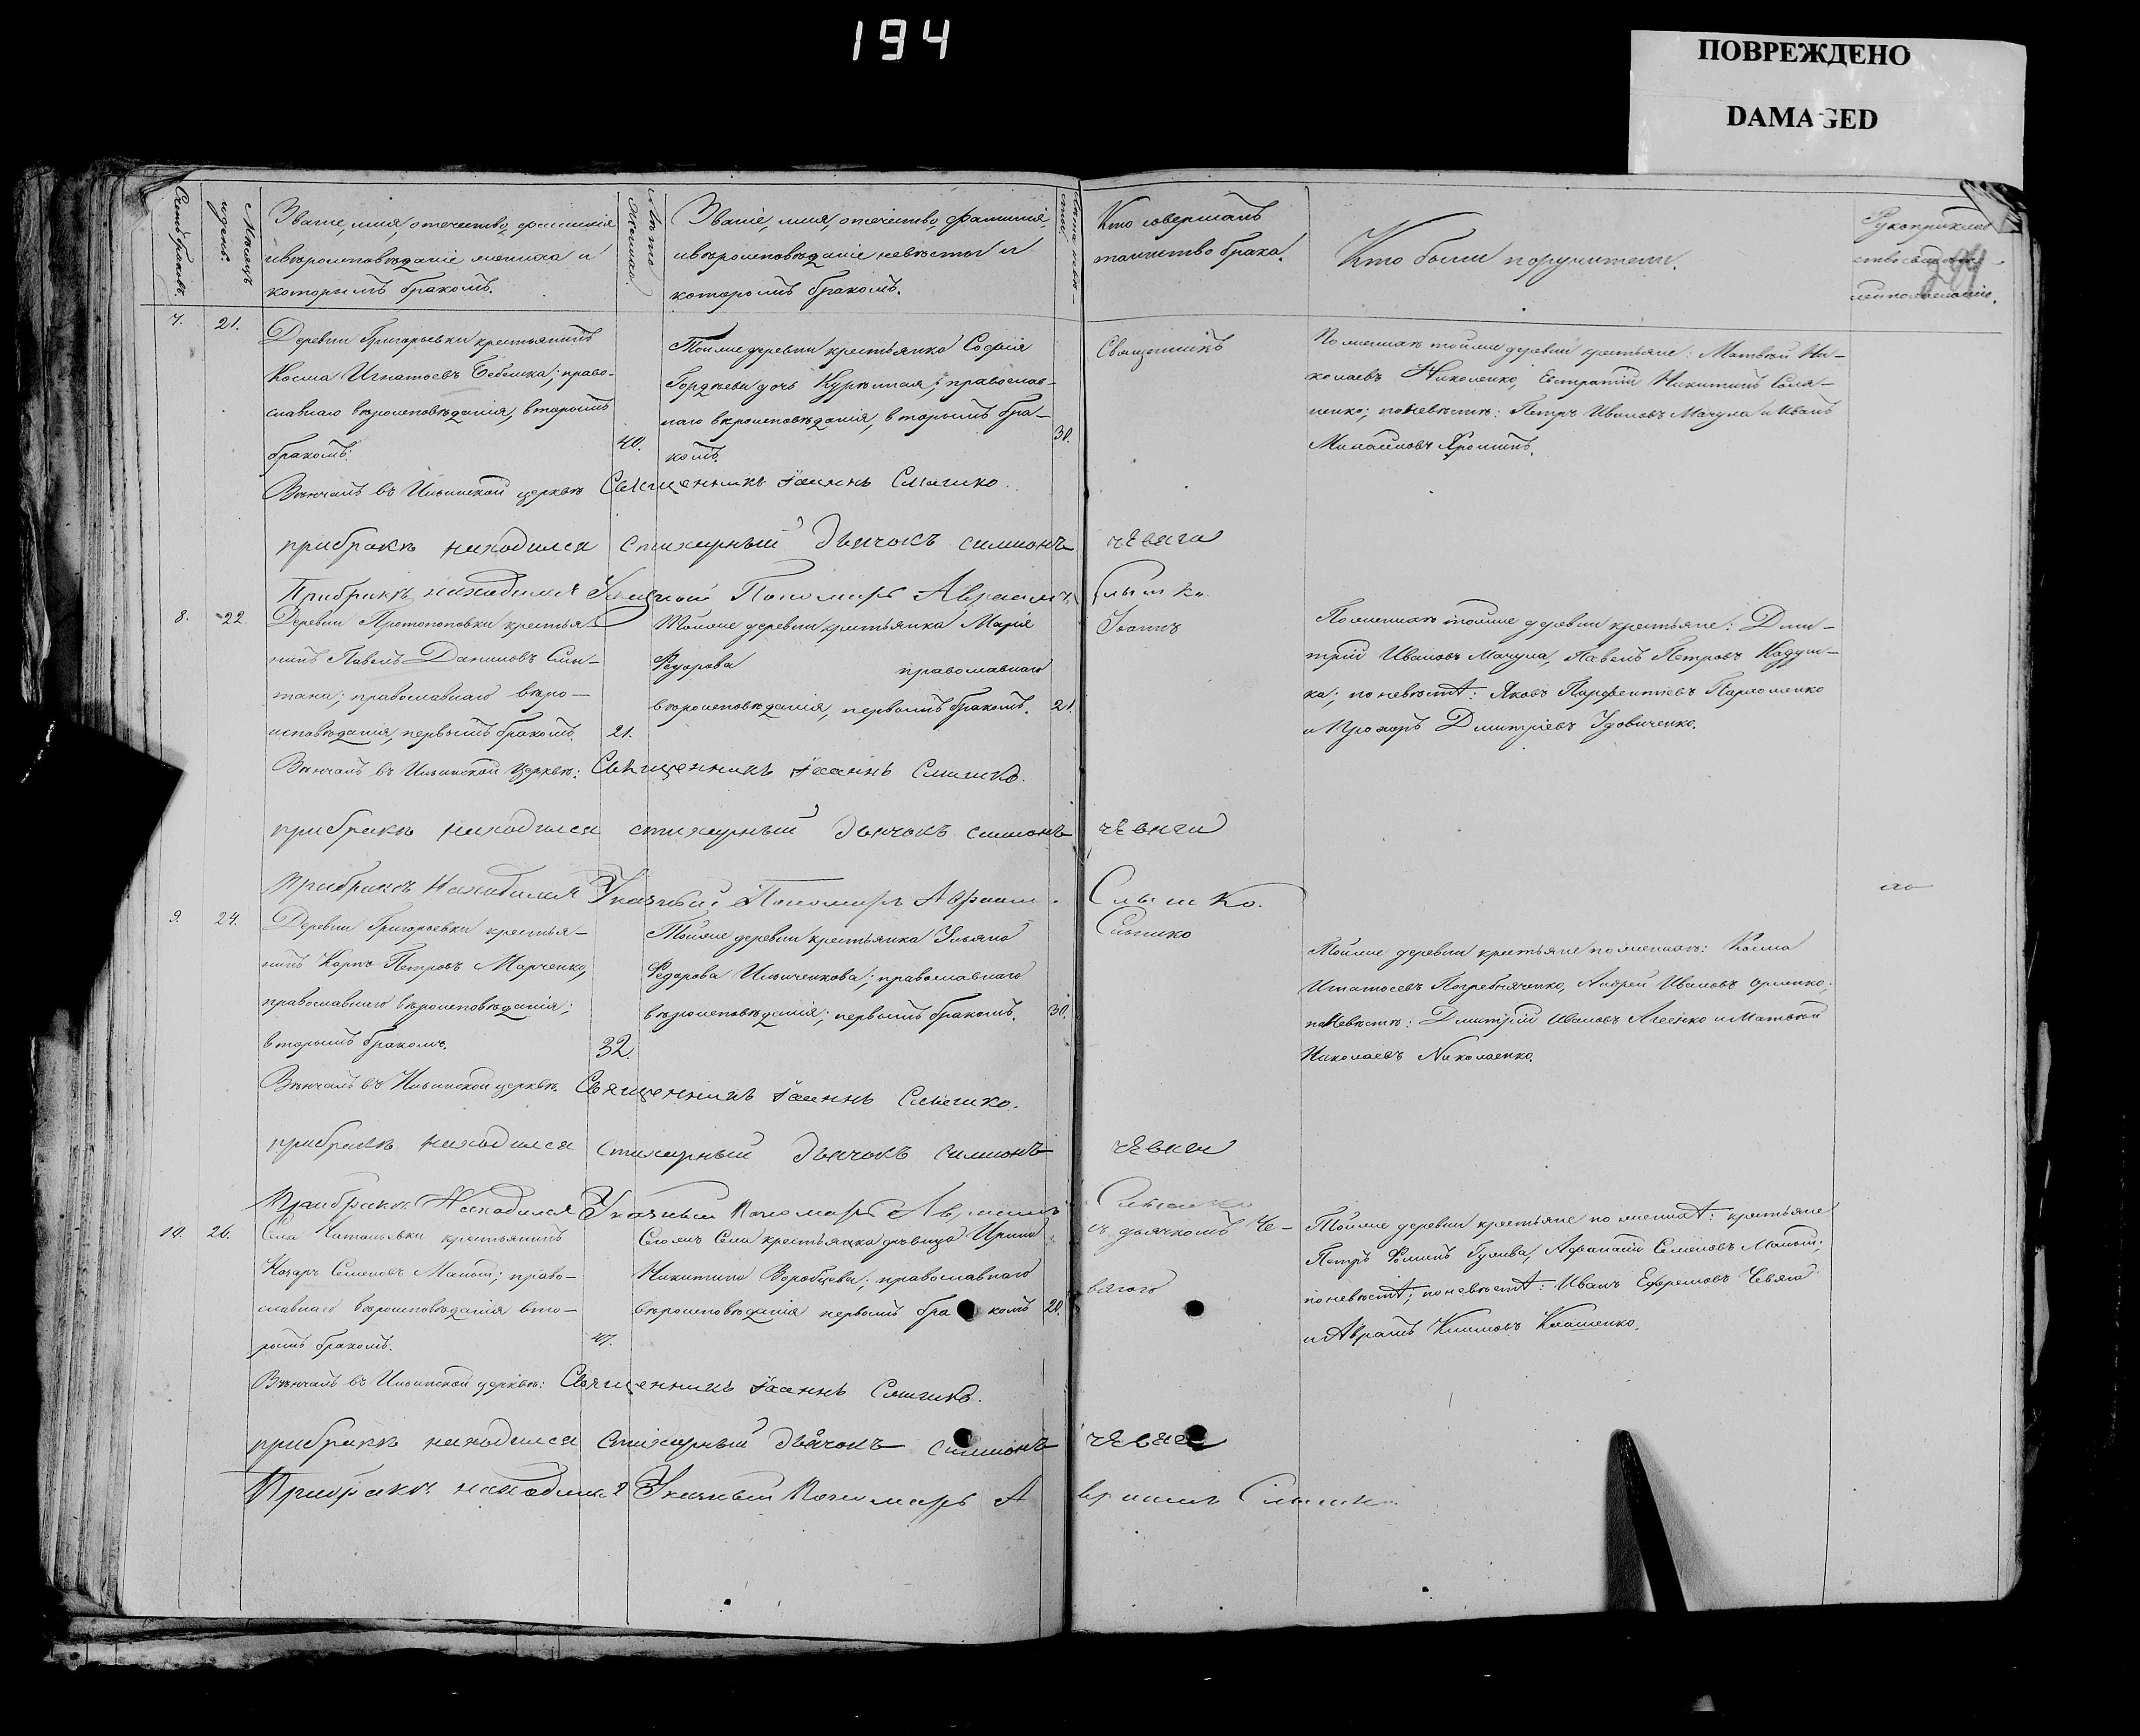 194
ПОВРЕЖДЕНО
DAMAGED
Счетъ браковъ.
Мѣсяцъ и день.
Званіе, имя, отечество, фамилія
и вѣроисповѣданіе жениха и
которымъ бракомъ.
Лѣта жениха.
Званіе, имя, отечество, фамилія
и вѣроисповѣданіе невѣсты и
которымъ бракомъ.
Кто совершалъ
таинство брака.
Кто были поручители.
7. 21.
Деревни Григорьевки крестьянинъ
Косма Игнатьевъ; право-
славнаго вѣроисповѣданія, вторымъ
бракомъ.
40.
Той же деревни крестьянка Софія
Гордѣева дочь; православ-
наго вѣроисповѣданія, вторымъ бра-
комъ.
30.
Священникъ
По женихѣ той же деревни крестьяне: Матвѣй Ни-
колаевъ Николенко, Евстратій Никитинъ
по невѣстѣ: Петръ Ивановъ Мачула и Иванъ
Михайловъ
Вѣнчалъ въ Ильинской церквѣ Священникъ Іоаннъ Слышко.
при бракѣ находился стихарный дьячокъ Симионъ чЕвяга
При бракѣ находился Указный Пономарь Авраамъ Слышко
8. 22
Деревни Протопоповки крестья-
нинъ Павелъ Даниловъ
православнаго вѣро-
исповѣданія, первымъ бракомъ.
21.
Той же деревни крестьянка Марія
Федорова православнаго
вѣроисповѣданія, первымъ бракомъ.
21.
Іоаннъ
По женихѣ той же деревни крестьяне: Дми-
трій Ивановъ Мачула, Павелъ Петровъ
по невѣстѣ: Яковъ Парфентіевъ Пархоменко
и Прохоръ Дмитріевъ Удовиченко.
Вѣнчалъ въ Ильинской церквѣ: Священникъ Іоаннъ Слышко.
при бракѣ находился стихарный дьячокъ Симионъ чЕвяги
При бракѣ Находился Указный Пономарь Авраам. Слышко.
9. 24.
Деревни Григорьевки крестья-
нинъ Карпъ Петровъ Марченко,
православнаго вѣроисповѣданія;
вторымъ бракомъ.
32.
Той же деревни крестьянка Ульяна
Федорова Ильиченкова; православнаго
вѣроисповѣданія; первымъ бракомъ.
30.
Слышко
Той же деревни крестьяне по женихѣ: Косма
Игнатьевъ Погребняченко, Андрей Ивановъ
по невѣстѣ: Дмитрій Ивановъ Агеенко и Матвѣй
Николаевъ Николаенко.
Вѣнчалъ въ Ильинской церквѣ. Священникъ Іоаннъ Слышко.
при бракѣ находился стихарный дьячокъ Симионъ чЕвяги
При бракѣ Находился Указный Пономарь Авраамъ Слышко
10. 26.
Села Натальевки крестьянинъ
Назаръ Семеновъ; право-
славнаго вѣроисповѣданія вто-
рымъ бракомъ.
47.
Сего жъ Села крестьянка дѣвица Ирина
Никитина Воробцева; православнаго
вѣроисповѣданія первымъ бракомъ
20.
съ дьячкомъ Че-
вягою
Той же деревни крестьяне по женихѣ: крестьяне
Петръ Гулива, Афанасій Семеновъ
по невѣстѣ; по невѣстѣ: Иванъ Ефремовъ Чевяга
и Аврамъ Климовъ
Вѣнчалъ въ Ильинской церквѣ: Священникъ Іоаннъ Слышко.
при бракѣ находился Стихарный дьячокъ Симионъ чЕвяга
При бракѣ находился Указный Пономарь Авраамъ Слышко